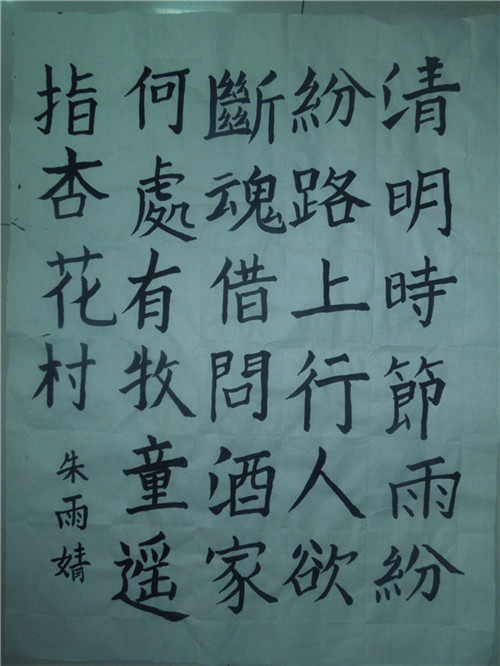 清明時節雨紛
紛路上行人欲
斷魂借問酒家
何處有牧童遥
指杏花村
朱雨婧